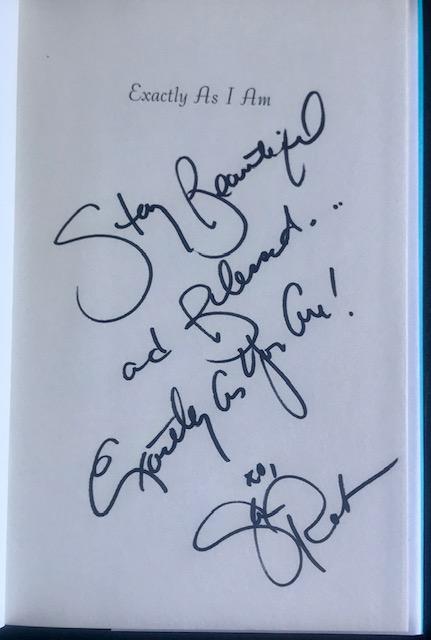 Exactly As I Am
Stay Beautiful
and Blessed...
Exactly As You Are!
xo,